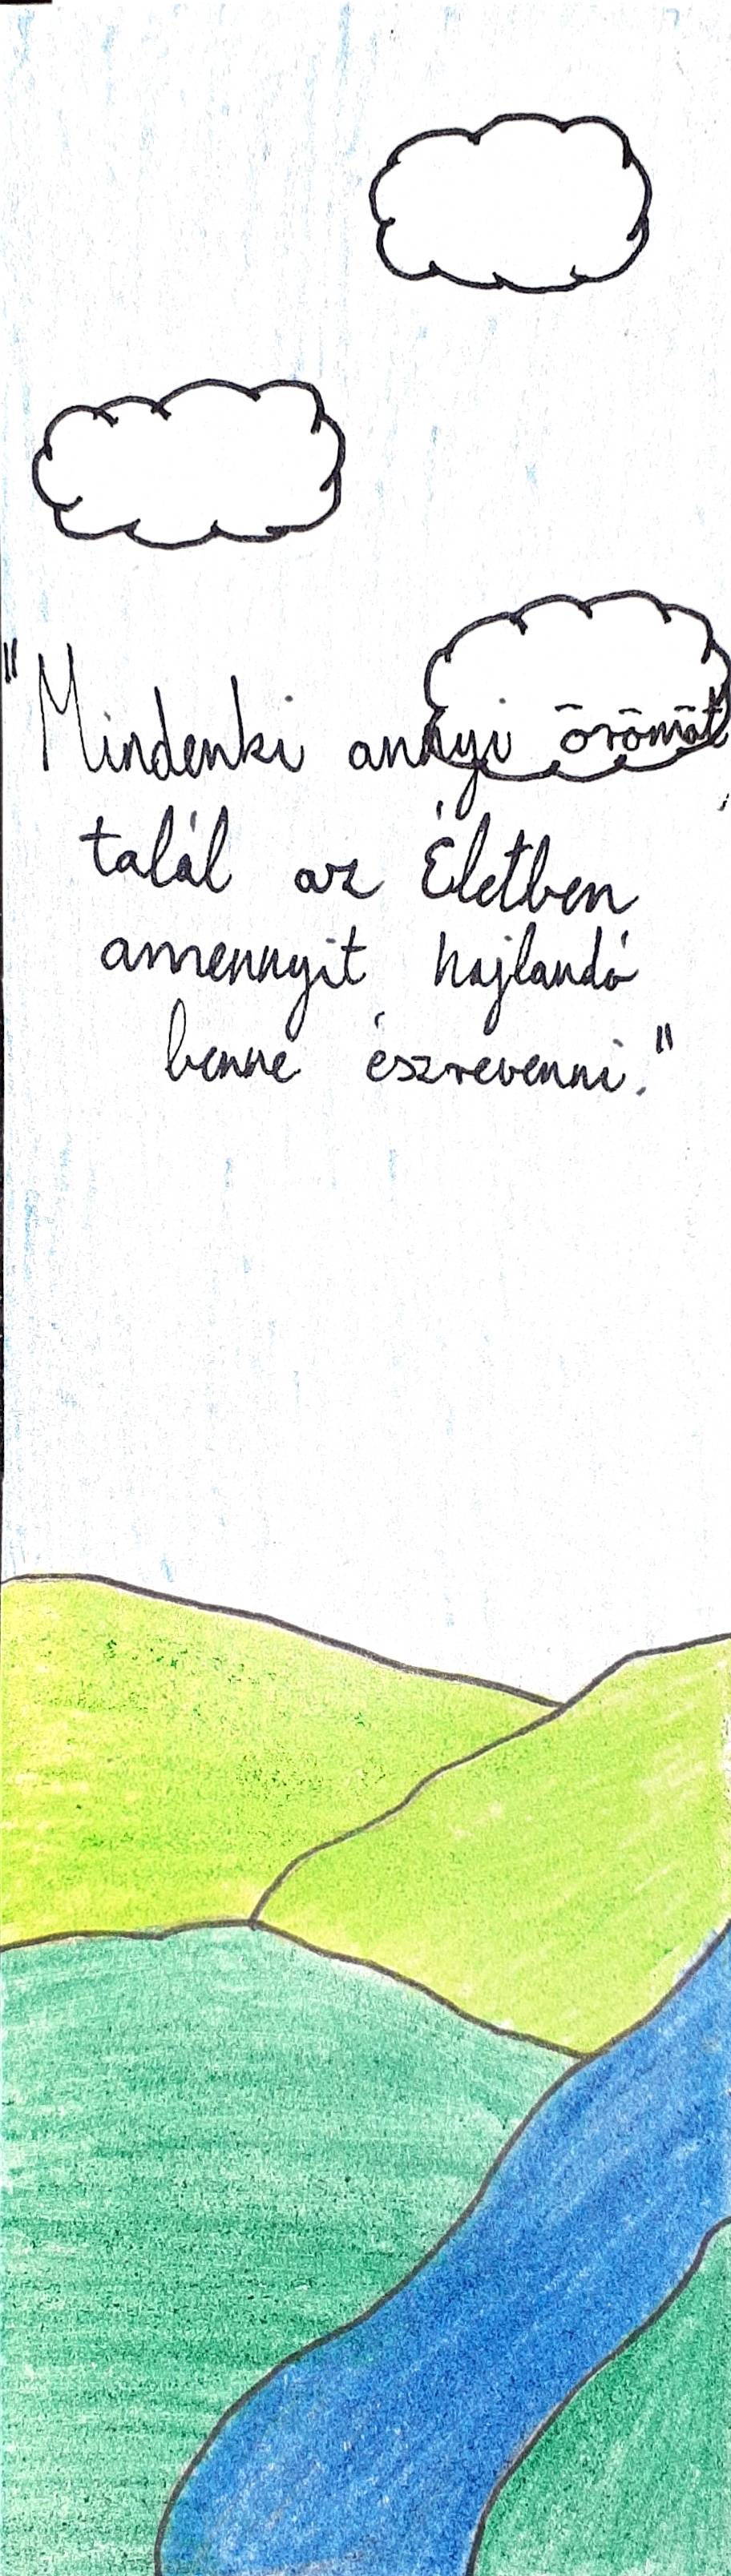 "Mindenki annyi örömöt,
talál az Életben
amennyit hajlandó
benne észrevenni."